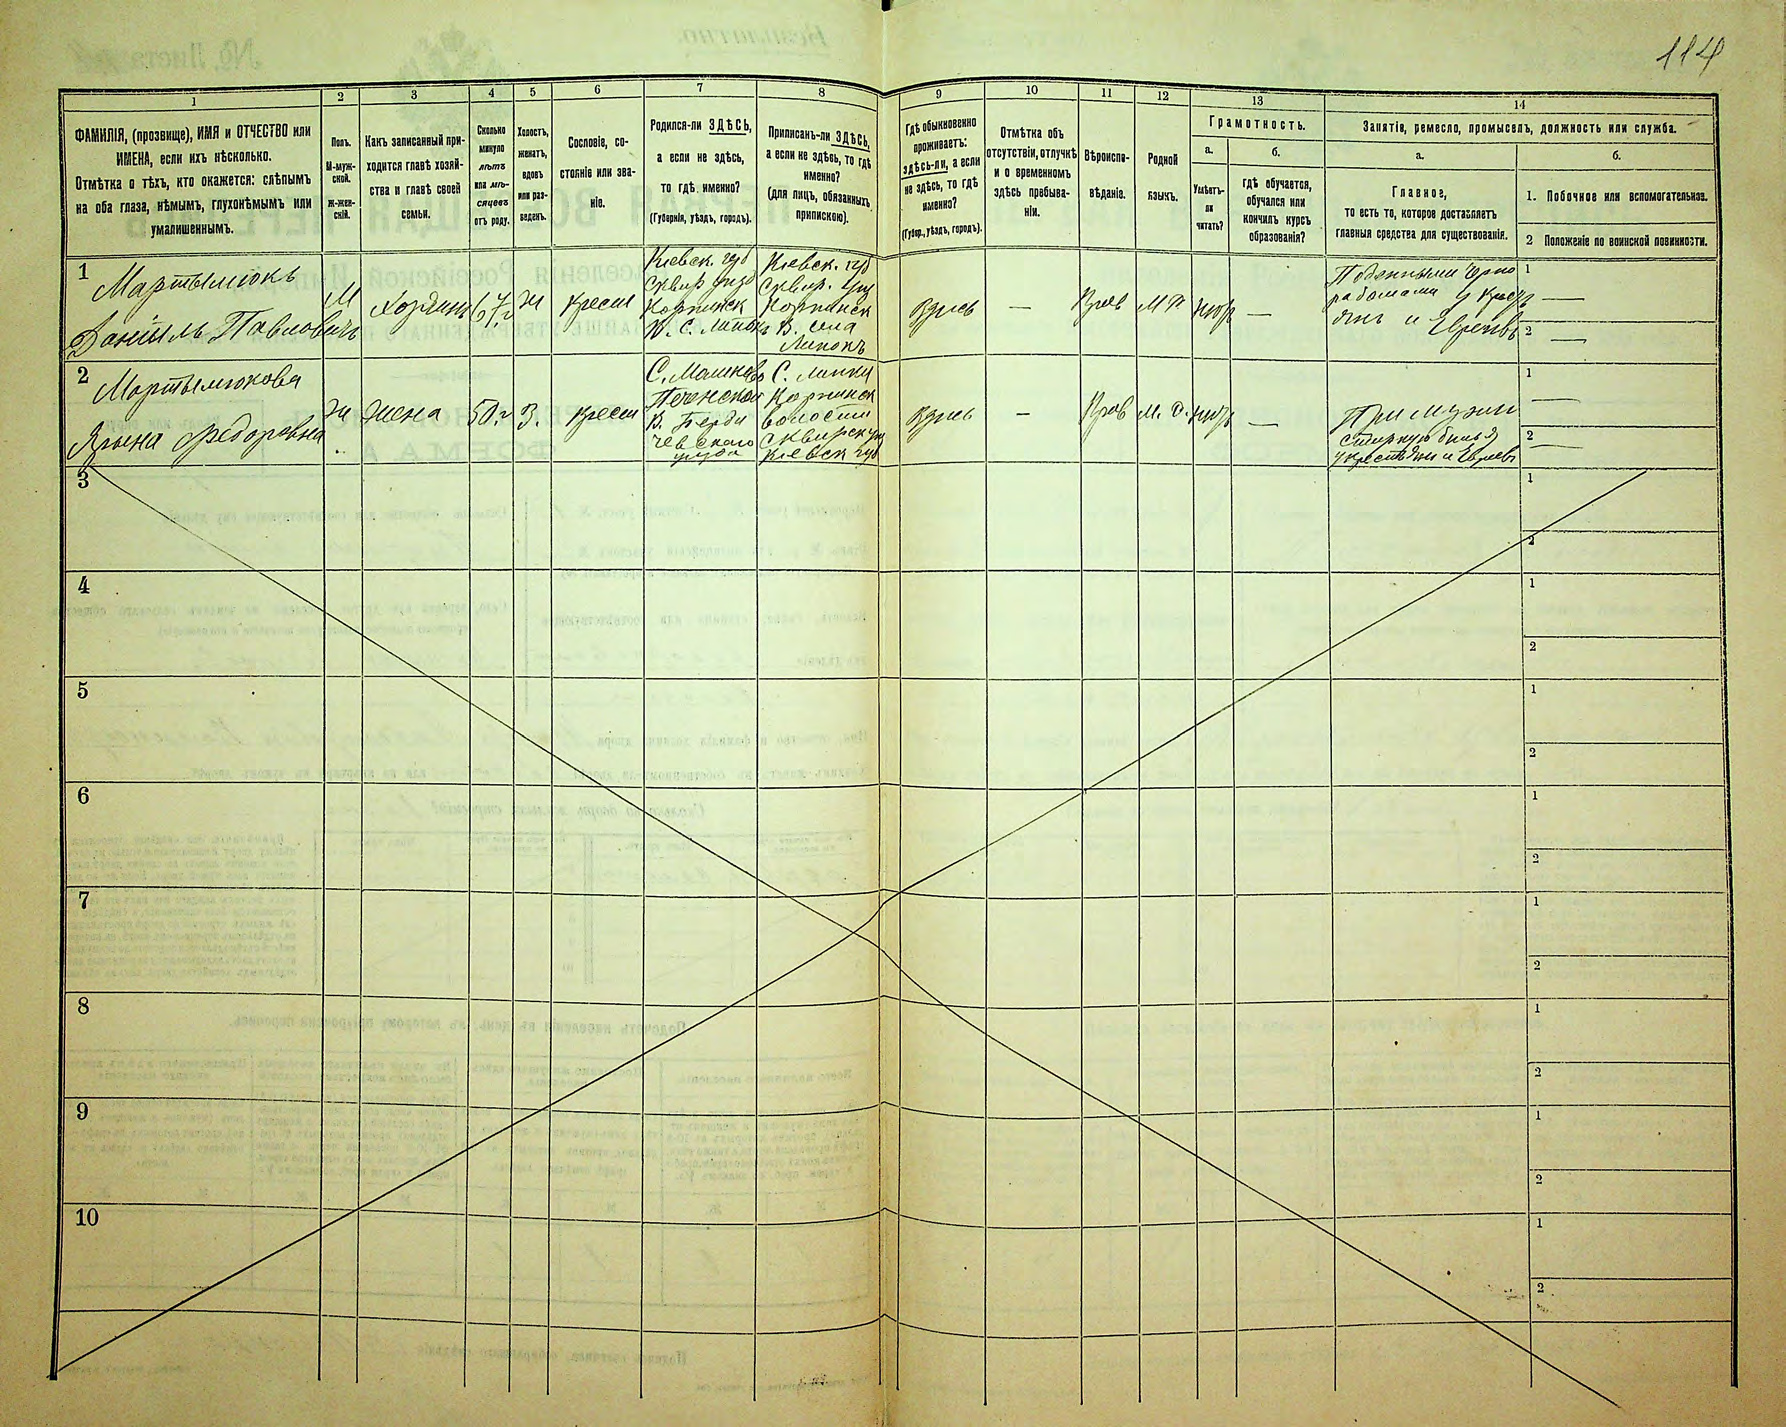 114
1
2
3
4
5
6
7
8
9
10
11
12
13
14
ФАМИЛІЯ, (прозвище), ИМЯ и ОТЧЕСТВО или
ИМЕНА, если ихъ нѣсколько.
Отмѣтка о тѣхъ, кто окажется: слѣпымъ
на оба глаза, нѣмымъ, глухонѣмымъ или
умалишеннымъ.
Полъ.
М-муж-
ской.
Ж-жен-
скій.
Какъ записанный при-
ходится главѣ хозяй-
ства и главѣ своей
семьи.
Сколько
минуло
лѣтъ
или мѣ-
сяцевъ
отъ роду.
Холостъ,
женатъ,
вдовъ
или раз-
веденъ.
Сословіе, со-
стояніе или зва-
ніе.
Родился-ли ЗДѢСЬ,
а если не здѣсь,
то гдѣ именно?
(Губернія, уѣздъ, городъ).
Приписанъ-ли ЗДѢСЬ,
а если не здѣсь, то гдѣ
именно?
(для лицъ, обязанныхъ
припискою).
Гдѣ обыкновенно
проживаетъ:
здѣсь-ли, а если
не здѣсь, то гдѣ
именно?
(Губер., уѣздъ, городъ).
Отмѣтка объ
отсутствіи, отлучкѣ
и о временномъ
здѣсь пребыва-
ніи.
Вѣроиспо-
вѣданіе.
Родной
языкъ.
Грамотность.
а.
Умѣетъ-
ли
читать?
б.
гдѣ обучается,
обучался или
кончилъ курсъ
образованія?
Занятіе, ремесло, промыселъ, должность или служба.
а.
Главное,
то есть то, которое доставляетъ
главныя средства для существованія.
б.
1. Побочное или вспомогательное.
2 Положеніе по воинской повинности.
1
Мартынюкъ
Даніилъ Павловичъ
М
Хозяинъ
67 г
Ж
Кресть
Кіевск. губ
Сквир уезд
Коpнинск
В. С. Липокъ
Кіевск. губ
Сквир. уез
Корнинск
В. села
Липокъ
Здѣсь
—
Прав
М. Р.
нигр
—
Поденными
работами у крест
янъ и Евреевъ
1 —
2 —
2
Мартынюкова
Ярына Федоровна
Ж
Жена
50 г
З.
Крест
С.
В. Берди
чевскаго
уезда
С. Липки
Корнинск
волости
Сквирск уез
Кіевск губ
Здѣсь
—
Прав
М. Р.
нигр
—
При мужи
стиркую бѣлья
у крестьян и Евреевъ
1 —
2 —
3
1
2
4
1
2
5
1
2
6
1
2
7
1
2
8
1
2
9
1
2
10
1
2